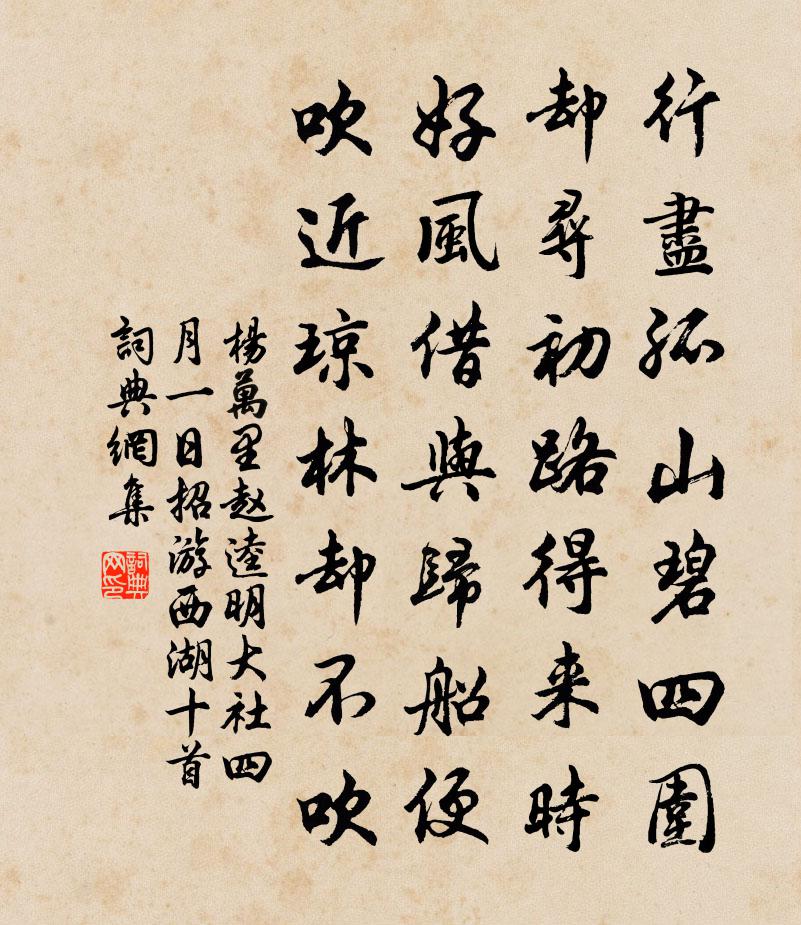 行盡孤山碧四圍
却尋初路得来時
好風借與歸船便
吹近琼林却不吹
楊萬里赵逵明大社四
月一日招游西湖十首
詞典網集
詞典
网印